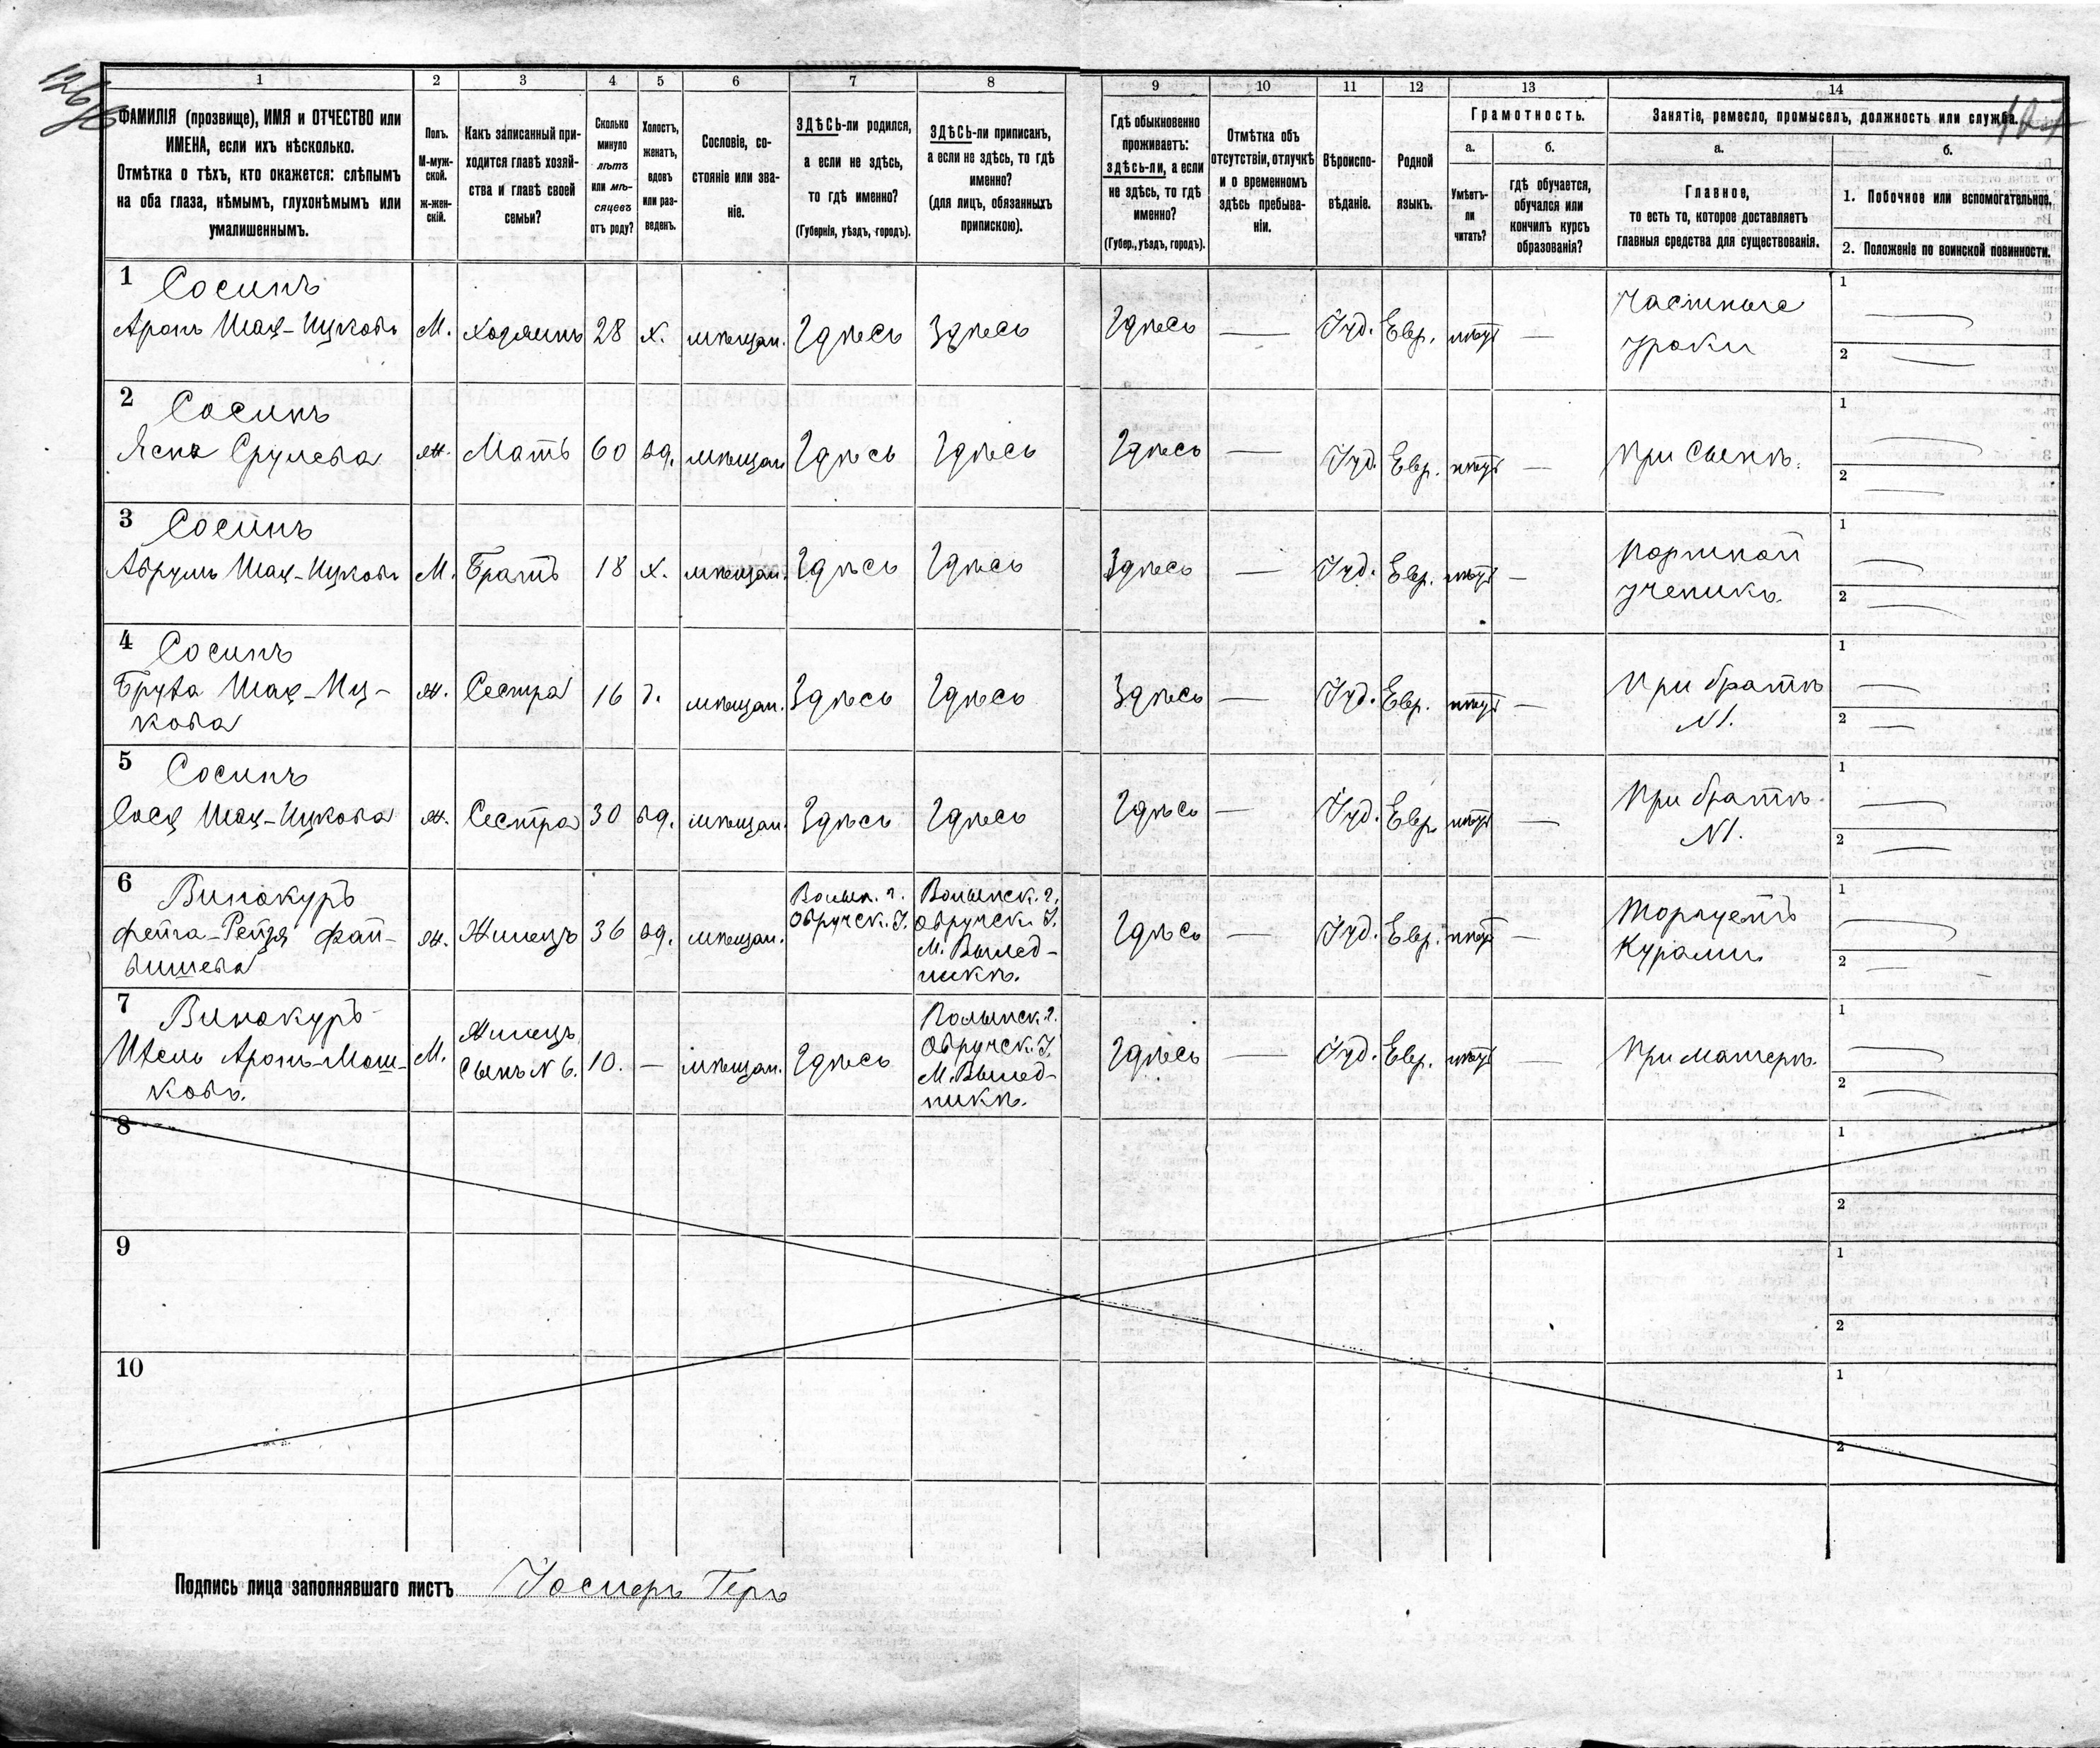 1 2 3 4 5 6 7 8 9 10 11 12 13 14
ФАМИЛІЯ (прозвище), ИМЯ и ОТЧЕСТВО или
ИМЕНА, если ихъ нѣсколько.
Отмѣтка о тѣхъ, кто окажется: слѣпымъ
на оба глаза, нѣмымъ, глухонѣмымъ или
умалишеннымъ.
Полъ.
М-муж-
ской.
ж-жен-
скій.
Какъ записанный при-
ходится главѣ хозяй-
ства и главѣ своей
семьи?
Сколько
минуло
лѣтъ
или мѣ-
сяцевъ
отъ роду?
Холостъ,
женатъ,
вдовъ
или раз-
веденъ.
Сословіе, со-
стояніе или зва-
ніе.
ЗДѢСЬ-ли родился,
а если не здѣсь,
то гдѣ именно?
(Губернія, уѣздъ, городъ).
ЗДѢСЬ-ли приписанъ,
а если не здѣсь, то гдѣ
именно?
(для лицъ, обязанныхъ
припискою).
Гдѣ обыкновенно
проживаетъ:
здѣсь-ли, а если
не здѣсь, то гдѣ
именно?
(Губер., уѣздъ, городъ).
Отмѣтка объ
отсутствіи, отлучкѣ
и о временномъ
здѣсь пребыва-
ніи.
Вѣроиспо-
вѣданіе.
Родной
языкъ.
Грамотность.
а.
Умѣетъ-
ли
читать?
б.
гдѣ обучается,
обучался или
кончилъ курсъ
образованія?
Занятіе, ремесло, промыселъ, должность или служба.
а.
Главное,
то есть то, которое доставляетъ
главныя средства для существованія.
б.
1. Побочное или вспомогательное.
2. Положеніе по воинской повинности.
1 Сосинъ
Аронъ Шая-Ицковъ М. хозяинъ 28 х. мѣщан. Здѣсь Здѣсь Здѣсь — Іуд. Евр. —
частные
уроки
1
2
2 Сосинъ
Срулева ж. Мать 60 вд. мѣщан. Здѣсь Здѣсь Здѣсь — Іуд. Евр. — При сынѣ.
1
2
3 Сосинъ
Абрумъ Шая-Ицковъ М. Братъ 18 х. мѣщан. Здѣсь Здѣсь Здѣсь — Іуд. Евр. —
Портной
ученикъ
1
2
4 Сосинъ
Шая-Иц-
кова
ж. Сестра 16 д. мѣщан. Здѣсь Здѣсь Здѣсь — Іуд. Евр. —
При братѣ
N1.
1
2
5 Сосинъ
Шая-Ицкова ж. Сестра 30 вд. мѣщан. Здѣсь Здѣсь Здѣсь — Іуд. Евр. —
При братѣ
N1.
1
2
6 Винокуръ
Фейга-Рейзя Фай-
вишева
ж. Жилецъ 36 вд. мѣщан.
Волын. г.
Овручск. У.
Волынск. г.
Овручск. У.
Здѣсь — Іуд. Евр. —
Торгуетъ
Курами.
1
2
7 Винокуръ
Аронъ-Мош-
ковъ.
М.
Жилецъ
Сынъ N 6.
10. — мѣщан. Здѣсь
Волынск. г.
Овручск. У.
Здѣсь — Іуд. Евр. — При матери.
1
2
8
1
2
9
1
2
10
1
2
Подпись лица заполнявшаго листъ